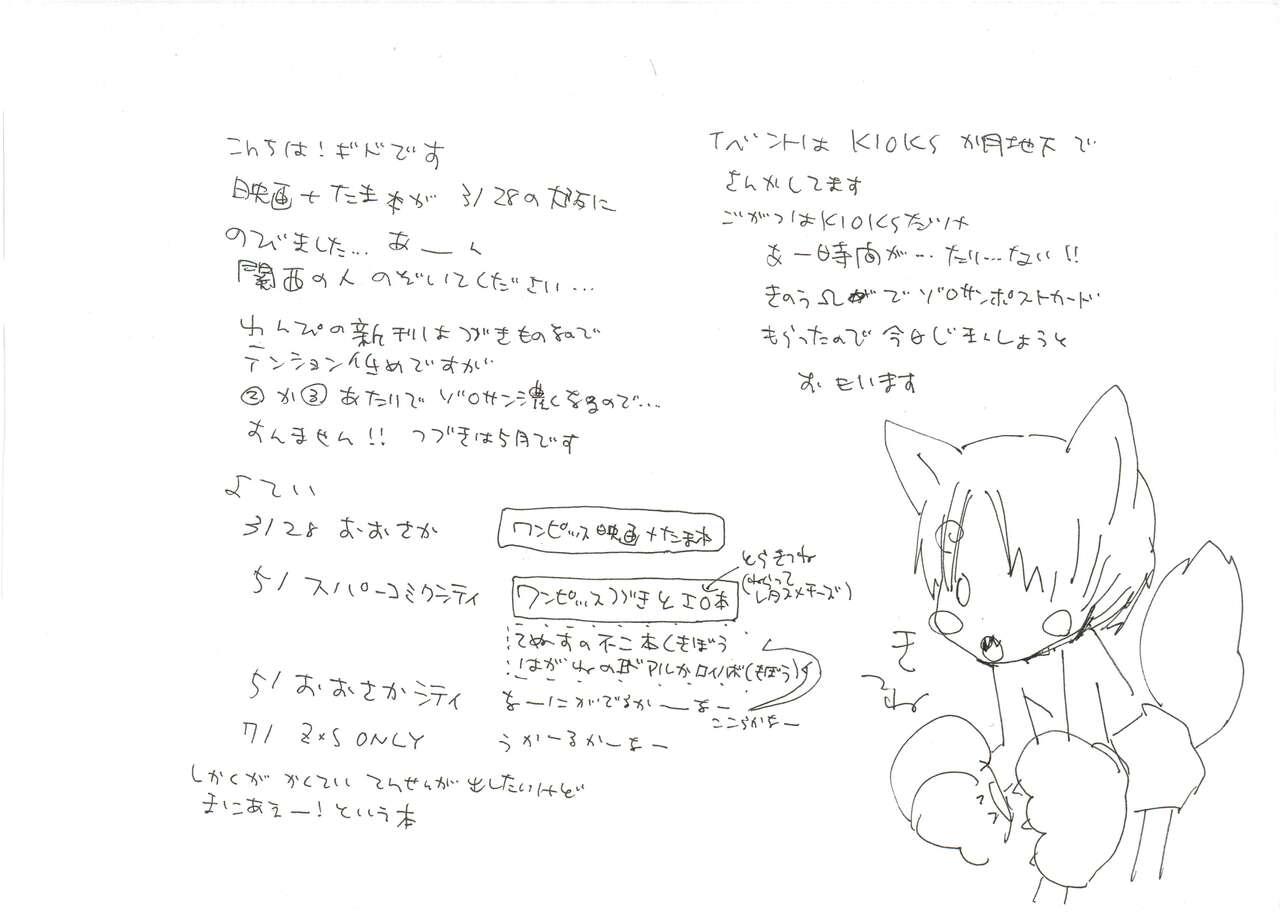 こんちは！ギドです
映画+たま本が 3/28の大阪に
のびました… あーん
関西の人 のぞいてください…
わんぴの新刊はつづきものなので
テンション低めですが
②か③あたりで ゾロサン濃くなるので…
すんません!! つづきは5月です
よてい
3/28 おおさか ワンピッス映画+たま本
5/ スパーコミクシティ ワンピッスつづきとエロ本
とらきつね
(ねらって
レタスメチーズ)
てぬすの不二本(きぼう
はがねの ロイ (きぼう)
5/ おおさかシティ なーにがでるかーなー
ここらかなー
7/ Z×S ONLY うかーるかーなー
しかくが かくてい てんせんが 出したいけど
まにあえー！という本
イベントは K10KS か月地下で
さんかしてます
ごがつはK10KSだけ
あー時間が…たり…ない!!
きのう で ゾロサンポストカード
もらったので 今日じまんしようと
おもいます
きつね